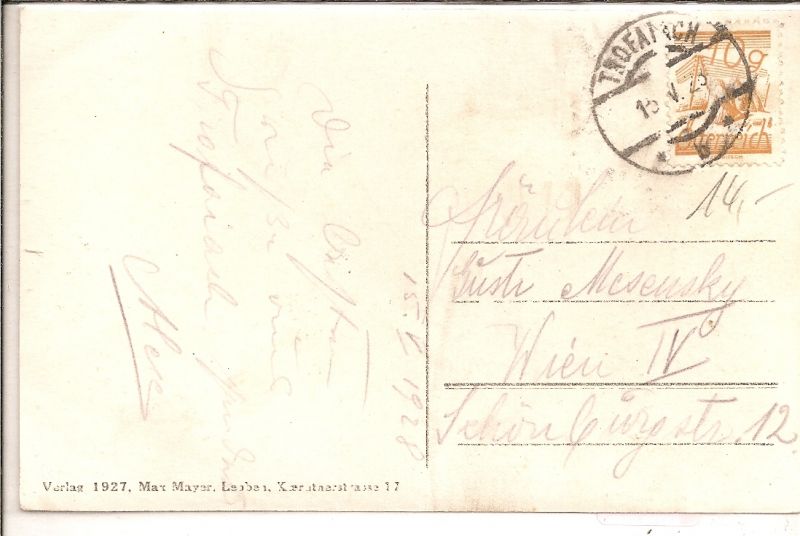 Die besten
Grüße aus
Trofaiach sendet
Alex
15. V 1928
TROFAIACH
15.V.28
* b *
10g
Österreich
14,-
Fräulein
Gusti Mesensky
Wien IV
Schönburgstr. 12
Verlag 1927, Max Mayer, Leoben, Kærntnerstrasse 17